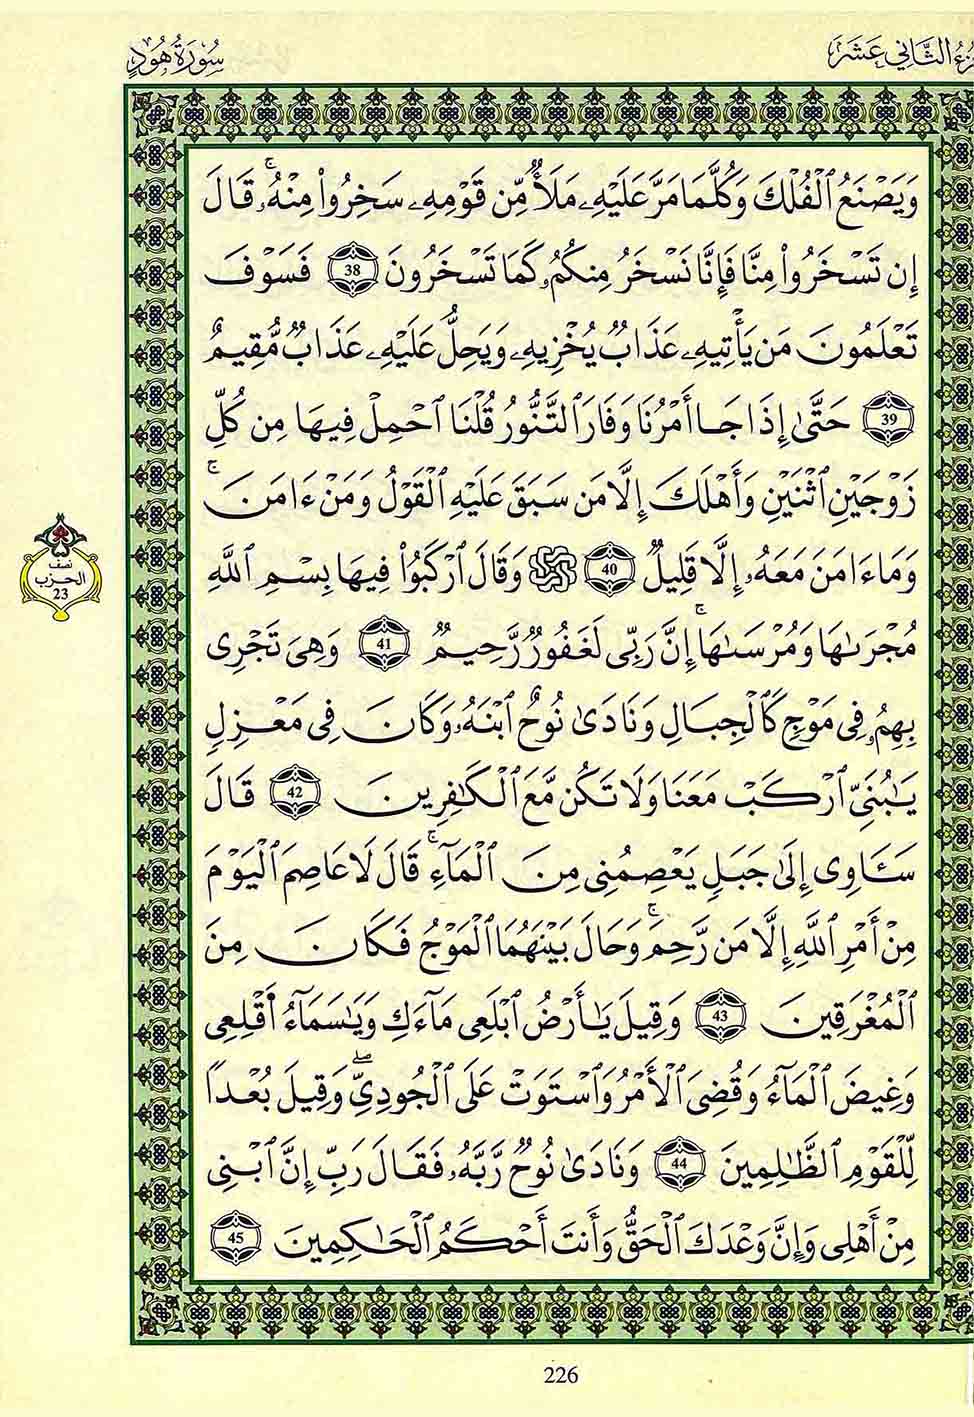 الثَّانِي عَشَرَ
سُورَةُ هُودٍ
وَيَصْنَعُ ٱلْفُلْكَ وَكُلَّمَا مَرَّ عَلَيْهِۦ مَلَأٌ مِّن قَوْمِهِۦ سَخِرُوا۟ مِنْهُۥ ۚ قَالَ
إِن تَسْخَرُوا۟ مِنَّا فَإِنَّا نَسْخَرُ مِنكُمُۥ كَمَا تَسْخَرُونَ 38 فَسَوْفَ
تَعْلَمُونَ مَن يَأْتِيهِۦ عَذَابٌ يُخْزِيهِۦ وَيَحِلُّ عَلَيْهِۦ عَذَابٌ مُّقِيمٌ
39 حَتَّىٰ إِذَا جَا أَمْرُنَا وَفَارَ ٱلتَّنُّورُ قُلْنَا ٱحْمِلْ فِيهَا مِن كُلِّ
زَوْجَيْنِ ٱثْنَيْنِ وَأَهْلَكَ إِلَّا مَن سَبَقَ عَلَيْهِ ٱلْقَوْلُ وَمَنْ ءَامَنَ ۚ
وَمَا ءَامَنَ مَعَهُۥ إِلَّا قَلِيلٌ 40 وَقَالَ ٱرْكَبُوا۟ فِيهَا بِسْمِ ٱللَّهِ
مُجْرَىٰهَا وَمُرْسَىٰهَا ۚ إِنَّ رَبِّى لَغَفُورٌ رَّحِيمٌ 41 وَهِىَ تَجْرِى
بِهِمُۥ فِى مَوْجٍ كَٱلْجِبَالِ وَنَادَىٰ نُوحٌ ٱبْنَهُۥ وَكَانَ فِى مَعْزِلٍ
يَٰبُنَىِّ ٱرْكَبْ مَعَنَا وَلَا تَكُن مَّعَ ٱلْكَٰفِرِينَ 42 قَالَ
سَـَٔاوِى إِلَىٰ جَبَلٍ يَعْصِمُنِى مِنَ ٱلْمَآءِ ۚ قَالَ لَا عَاصِمَ ٱلْيَوْمَ
مِنْ أَمْرِ ٱللَّهِ إِلَّا مَن رَّحِمَ ۚ وَحَالَ بَيْنَهُمَا ٱلْمَوْجُ فَكَانَ مِنَ
ٱلْمُغْرَقِينَ 43 وَقِيلَ يَٰأَرْضُ ٱبْلَعِى مَآءَكِ وَيَٰسَمَآءُ أَقْلِعِى
وَغِيضَ ٱلْمَآءُ وَقُضِىَ ٱلْأَمْرُ وَٱسْتَوَتْ عَلَى ٱلْجُودِىِّ ۖ وَقِيلَ بُعْدًا
لِّلْقَوْمِ ٱلظَّٰلِمِينَ 44 وَنَادَىٰ نُوحٌ رَّبَّهُۥ فَقَالَ رَبِّ إِنَّ ٱبْنِى
مِنْ أَهْلِى وَإِنَّ وَعْدَكَ ٱلْحَقُّ وَأَنتَ أَحْكَمُ ٱلْحَٰكِمِينَ 45
نصف
الحزب
23
226